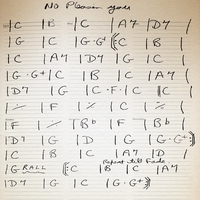 No Pleasin you
|C |B |C |A7 |D7 |
|G |C |G·G+ |{C |B |
|C |A7 |D7 |G |C
|G·G+ |C |B |C |A7 |
|D7 |G |C·F·|C |C
|F |٪ |٪ |C |٪
|F |٪ |Bb |F |Bb |
|D7 |G |D |G |G·G+}|
|C |B |C |A7 |D |
Repeat till Fade
|G RALL |{C |B |C |A7
|D7 |G |G·G+}|